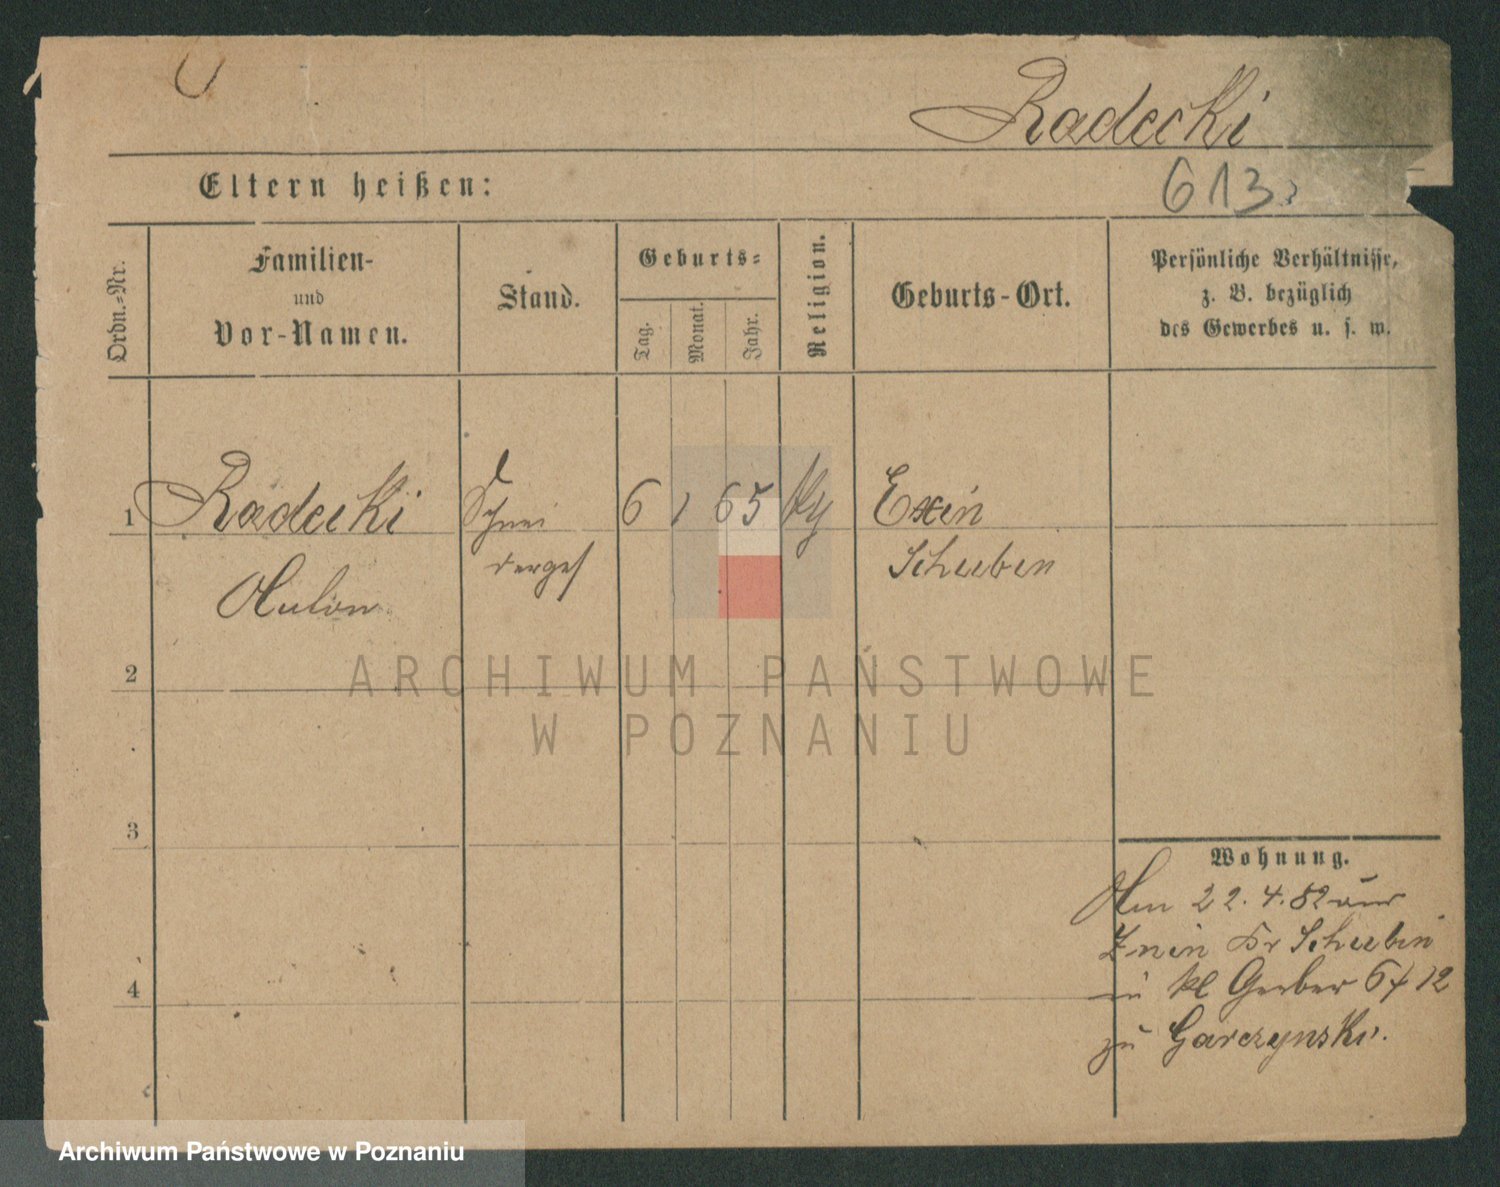 Radecki
Eltern heißen:
613
Ordn.-Nr.
Familien-
und
Vor-Namen.
Stand.
Geburts-
Tag.
Monat.
Jahr.
Religion.
Geburts-Ort.
Persönliche Verhältnisse,
z. B. bezüglich
des Gewerbes u. s. w.
1
Radecki
Schnei
6
1
65
Exin
derges
Schubin
2
3
4
Wohnung.
Am 22. 4. 82 aus
Znin Kr Schubin
in kl Gerber 6/12
zu Garczynski.
ARCHIWUM PAŃSTWOWE
W POZNANIU
Archiwum Państwowe w Poznaniu